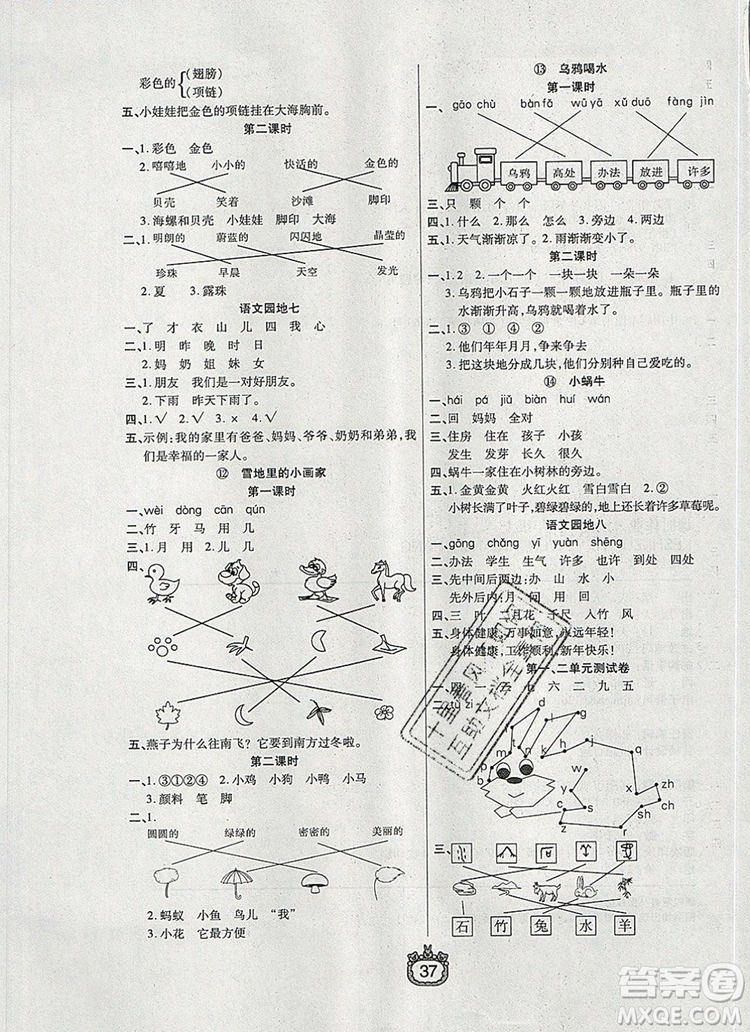 彩色的{(翅膀)
(项链)
五、小娃娃把金色的项链挂在大海胸前。
第二课时
一、1. 彩色 金色
2. 嘻嘻地 小小的 快活的 金色的
贝壳 笑着 沙滩 脚印
3. 海螺和贝壳 小娃娃 脚印 大海
二、1. 明朗的 蔚蓝的 闪闪地 晶莹的
珍珠 早晨 天空 发光
2. 夏 3. 露珠
语文园地七
一、了 才 衣 山 儿 四 我 心
二、1. 明 昨 晚 时 日
2. 妈 奶 姐 妹 女
三、1. 朋友 我们是一对好朋友。
2. 下雨 昨天下雨了。
四、1. √ 2. √ 3. × 4. √
五、示例:我的家里有爸爸、妈妈、爷爷、奶奶和弟弟,我
们是幸福的一家人。
⑫ 雪地里的小画家
第一课时
一、wèi dòng cān qún
二、竹 牙 马 用 几
三、1. 月 用 2. 儿 几
四、
五、燕子为什么往南飞? 它要到南方过冬啦。
第二课时
一、1. ③①②④ 2. 小鸡 小狗 小鸭 小马
3. 颜料 笔 脚
二、1.
圆圆的 绿绿的 密密的 美丽的
2. 蚂蚁 小鱼 鸟儿 “我”
3. 小花 它最方便
⑬ 乌鸦喝水
第一课时
一、gāo chù bàn fǎ wū yā xǔ duō fàng jìn
乌鸦 高处 办法 放进 许多
三、只 颗 个 个
四、1. 什么 2. 那么 怎么 3. 旁边 4. 两边
五、1. 天气渐渐凉了。 2. 雨渐渐变小了。
第二课时
一、1. 2 2. 一个一个 一块一块 一朵一朵
3. 乌鸦把小石子一颗一颗地放进瓶子里。瓶子里的
水渐渐升高,乌鸦就喝着水了。
二、1. ③ ① ④ ②
2. 他们年年月月,争来争去
3. 把这块地分成几块,想种什么就种什么。
⑭ 小蜗牛
一、hái pá jiǔ biàn huǒ wán
二、回 妈妈 全对
三、住房 住在 孩子 小孩
发生 发芽 很多 很久
四、蜗牛一家住在小树林的旁边。
五、1. 金黄金黄 火红火红 雪白雪白 2. ②
小树长满了叶子,碧绿碧绿的,地上还长着许多草莓呢。
语文园地八
一、gōng chǎng yī yuàn shēng
二、办法 学生 生气 许多 也许 到处 四处
三、先中间后两边:办 山 水 小
先外后内:月 同 用 回
四、三 叶 二月花 千尺 入竹 风
五、身体健康,万事如意,永远年轻!
身体健康,工作顺利,新年快乐!
第一、二单元测试卷
七 六 二 九 五
j g w q t p b n y x zh ch sh r z c s
三、
石 竹 兔 水 羊
37
答案圈
MXQE.COM